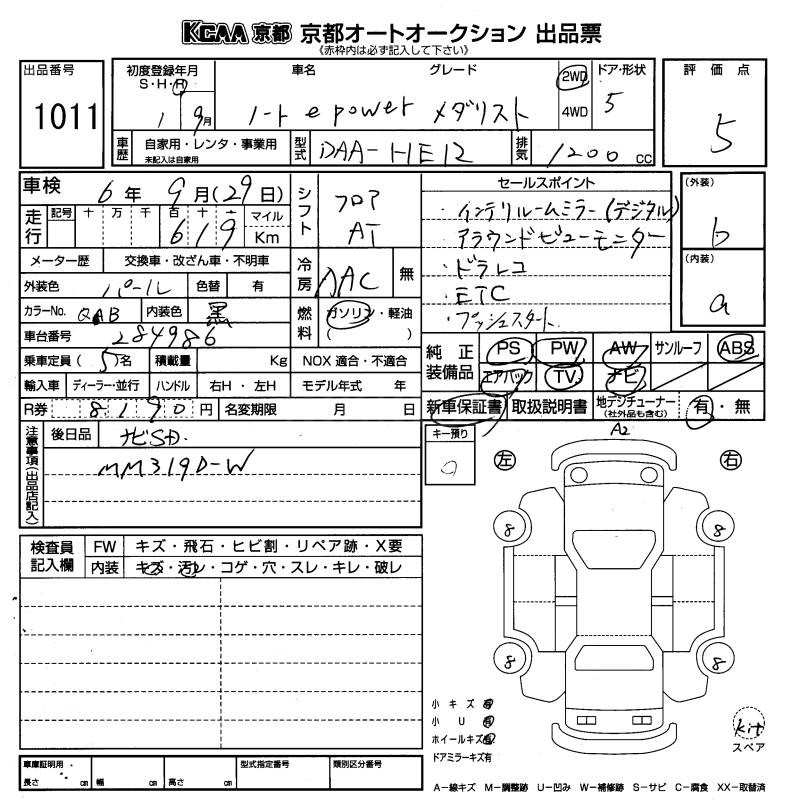 KCAA 京都 京都オートオークション 出品票
《赤枠内は必ず記入して下さい》
出品番号 1011
初度登録年月 S・H・R 1 9月
車名 グレード
ノート e power メダリスト
2WD 4WD
ドア・形状 5
評価点 5
車歴 自家用・レンタ・事業用
未記入は自家用
型式 DAA-HE12
排気 1200 cc
車検 6年 9月(29日)
シフト フロア AT
セールスポイント
・インテリルームミラー(デジタル)
・アラウンドビューモニター
・ドラレコ
・ETC
・プッシュスタート
(外装) b
(内装) a
走行 記号 十 万 千 百 十 一 マイル
619 Km
メーター歴 交換車・改ざん車・不明車
冷房 AAC 無
外装色 パール 色替 有
カラーNo. QAB 内装色 黒
燃料 ガソリン・軽油
( )
車台番号 284986
乗車定員(5)名 積載量 Kg NOX適合・不適合
純正装備品 PS PW AW サンルーフ ABS
エアバック TV ナビ
輸入車 ディーラー・並行 ハンドル 右H・左H モデル年式 年
R券 8190円 名変期限 月 日
新車保証書 取扱説明書 地デジチューナー(社外品も含む) 有・無
注意事項(出品店記入)
後日品 ナビSD.
MM319D-W
キー預り
A2
左 右
8 8
8 8
検査員記入欄 FW キズ・飛石・ヒビ割・リペア跡・X要
内装 キズ・汚レ・コゲ・穴・スレ・キレ・破レ
小キズ有
小U有
ホイールキズ有
ドアミラーキズ有
kit
スペア
車庫証明用 長さ cm 幅 cm 高さ cm
型式指定番号 類別区分番号
A-線キズ M-調整跡 U-凹み W-補修跡 S-サビ C-腐食 XX-取替済